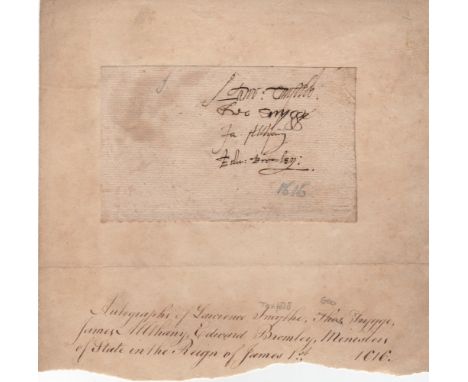 Geo Snygge
Ja Altham
Edw: Bromley:
1616
Geo
Autographs of Lawrence Smythe, Thos. Snygge,
James Althany, Edward Bromley, Ministers
of State in the Reign of James 1st. 1616.